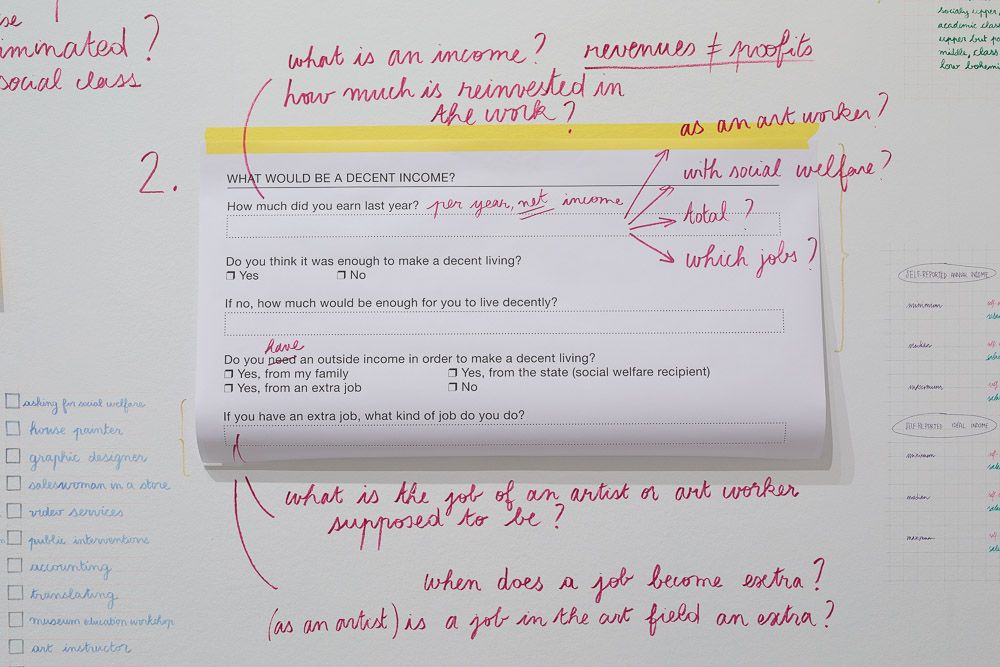 iminated?
social class
what is an income? revenues ≠ profits
how much is reinvested in
the work?
socially upper,
academic class
middle, class
low bohemi
2.
WHAT WOULD BE A DECENT INCOME?
How much did you earn last year? per year, net income
as an art worker?
with social welfare?
total?
which jobs?
Do you think it was enough to make a decent living?
❒ Yes ❒ No
If no, how much would be enough for you to live decently?
have
Do you need an outside income in order to make a decent living?
❒ Yes, from my family ❒ Yes, from the state (social welfare recipient)
❒ Yes, from an extra job ❒ No
If you have an extra job, what kind of job do you do?
what is the job of an artist or art worker
supposed to be?
when does a job become extra?
(as an artist) is a job in the art field an extra?
asking for social welfare
house painter
graphic designer
saleswoman in a store
video services
public interventions
accounting
translating
museum education workshop
art instructor
SELF-REPORTED ANNUAL INCOME
minimum
median
maximum
SELF-REPORTED IDEAL INCOME
minimum
median
maximum